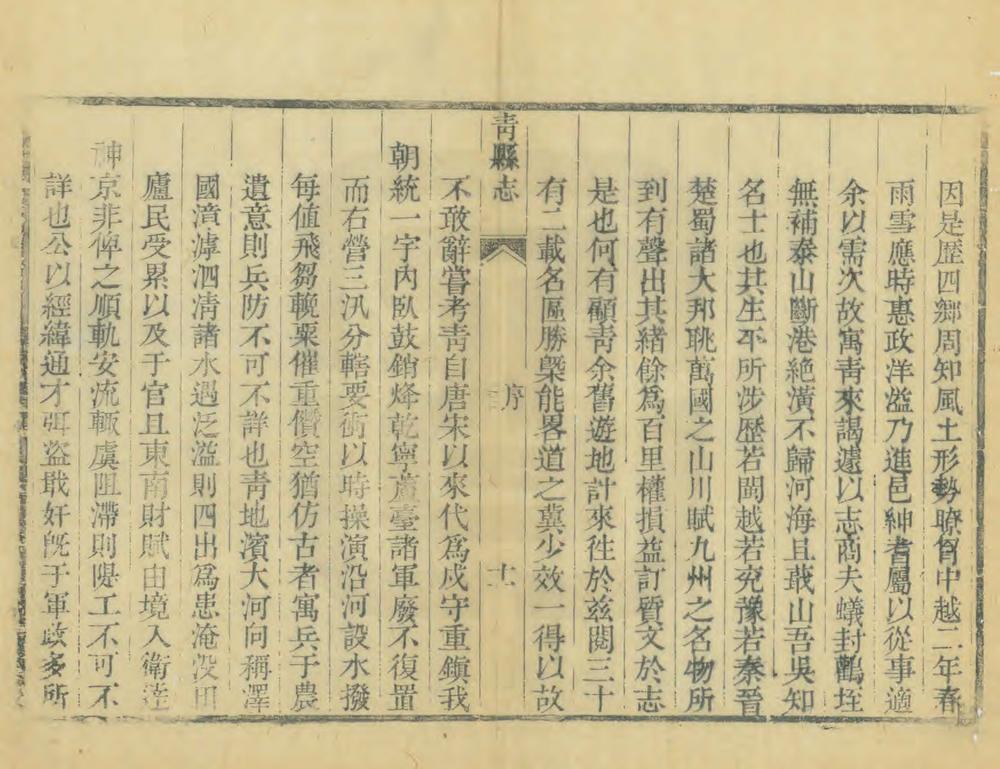 因是歷四鄉周知風土形勢瞭胷中越二年春
雨雪應時惠政洋溢乃進邑紳耆屬以從事適
余以需次故寓青來謁遽以志商夫蟻封鸛垤
無補泰山斷港絶潢不歸河海且蕺山吾吳知
名士也其生平所涉歷若閩越若兖豫若秦晉
楚蜀諸大邦眺萬國之山川賦九州之名物所
到有聲出其緒餘爲百里權損益訂質文於志
是也何有顧青余舊遊地計來徃於兹閱三十
有二載名區勝槩能畧道之冀少效一得以故
青縣志
序
十一
不敢辭嘗考青自唐宋以來代爲戍守重鎭我
朝統一宇內臥鼓銷烽乾寧蘆臺諸軍廢不復置
而右營三汛分轄要衝以時操演沿河設水撥
每値飛芻輓粟催重儹空猶仿古者寓兵于農
遺意則兵防不可不詳也青地濱大河向稱澤
國漳滹泗淸諸水遇泛溢則四出爲患淹沒田
廬民受累以及于官且東南財賦由境入衛達
神京非俾之順軌安流輒虞阻滯則隄工不可不
詳也公以經緯通才弭盜戢奸旣于軍政多所